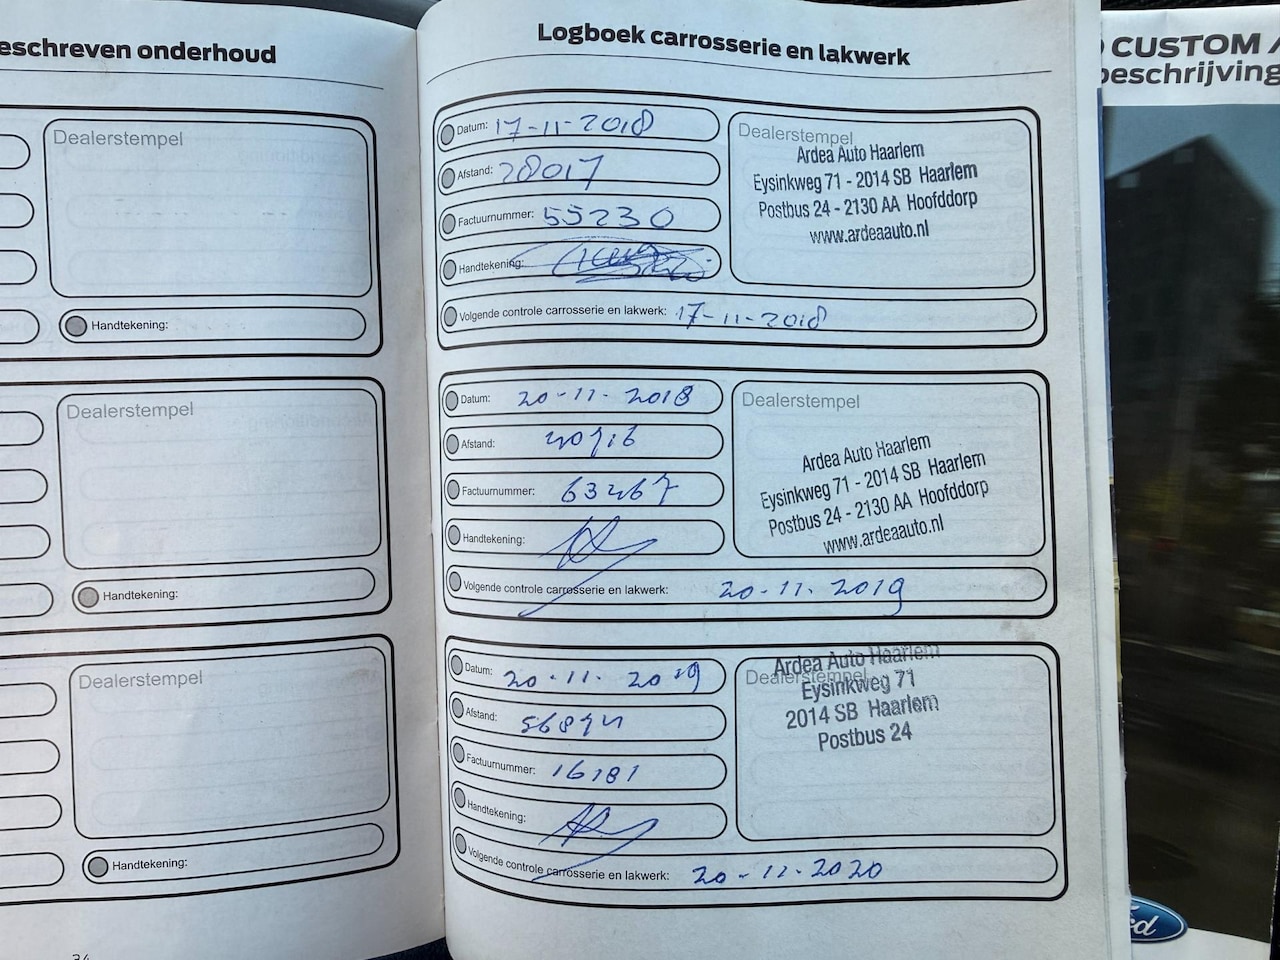 eschreven onderhoud
Dealerstempel
Handtekening:
Dealerstempel
Handtekening:
Dealerstempel
Handtekening:
Logboek carrosserie en lakwerk
Datum: 17-11-2018
Afstand: 28017
Factuurnummer: 55230
Handtekening:
Volgende controle carrosserie en lakwerk: 17-11-2018
Dealerstempel
Ardea Auto Haarlem
Eysinkweg 71 - 2014 SB Haarlem
Postbus 24 - 2130 AA Hoofddorp
www.ardeaauto.nl
Datum: 20-11-2018
Afstand:
Factuurnummer: 63467
Handtekening:
Volgende controle carrosserie en lakwerk: 20-11-2019
Dealerstempel
Ardea Auto Haarlem
Eysinkweg 71 - 2014 SB Haarlem
Postbus 24 - 2130 AA Hoofddorp
www.ardeaauto.nl
Datum: 20-11-2019
Afstand:
Factuurnummer: 16181
Handtekening:
Volgende controle carrosserie en lakwerk: 20-11-2020
Dealerstempel
Ardea Auto Haarlem
Eysinkweg 71
2014 SB Haarlem
Postbus 24
CUSTOM
beschrijving